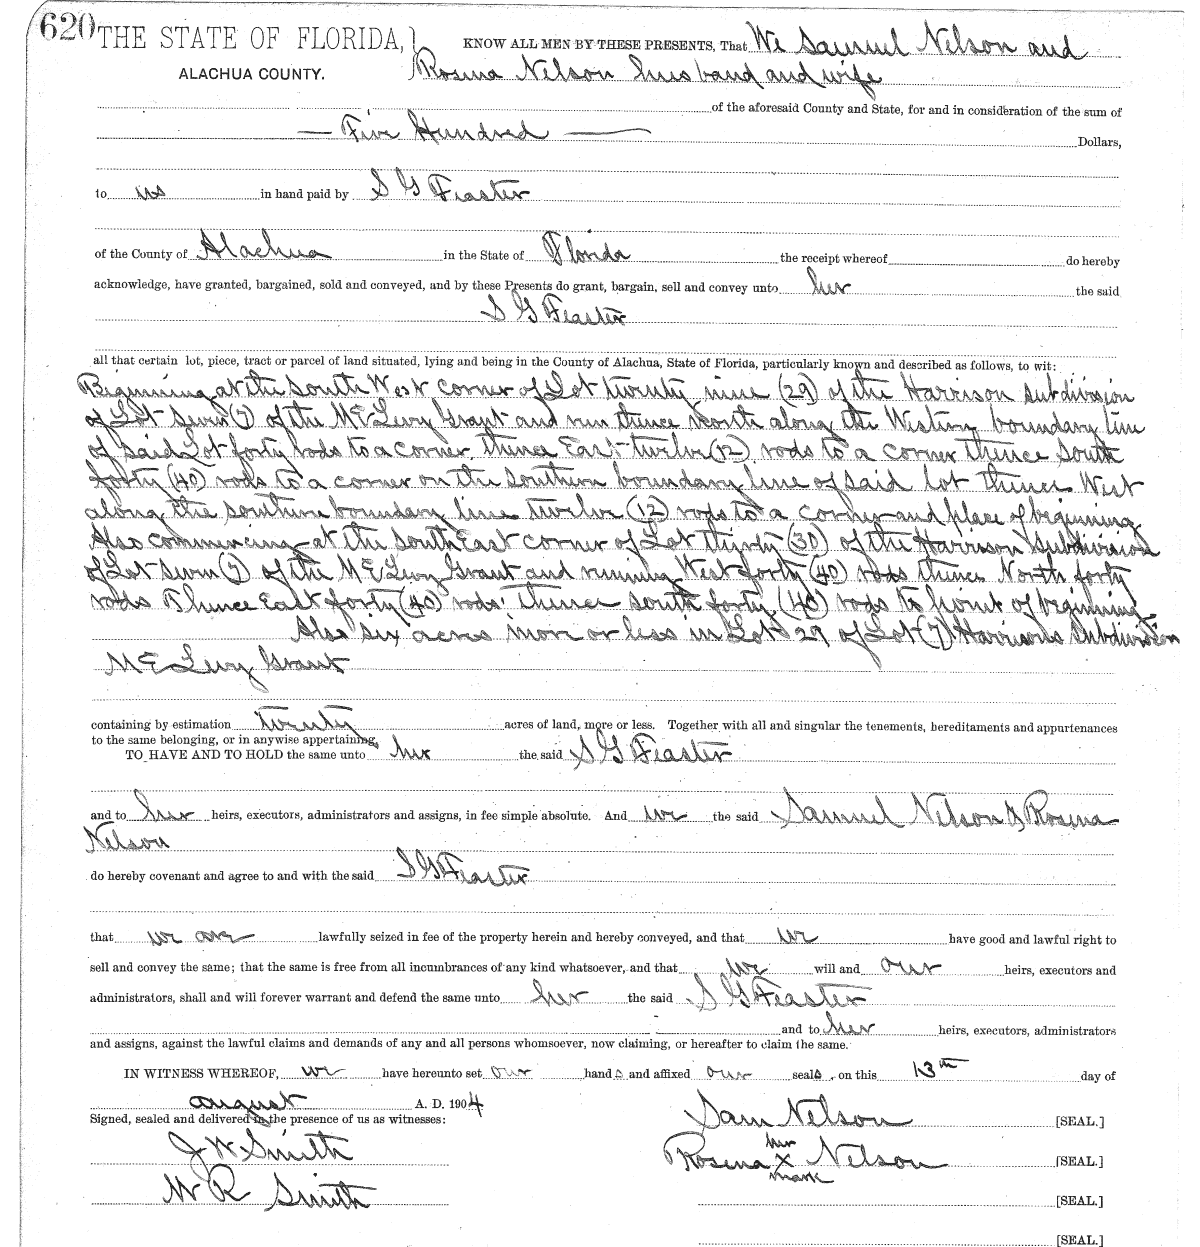 620 THE STATE OF FLORIDA, } KNOW ALL MEN BY THESE PRESENTS, That We Samuel Nelson and
ALACHUA COUNTY. Rosena Nelson husband and wife
of the aforesaid County and State, for and in consideration of the sum of
— Five Hundred — Dollars,
to us in hand paid by S G Feaster
of the County of Alachua in the State of Florida the receipt whereof do hereby
acknowledge, have granted, bargained, sold and conveyed, and by these Presents do grant, bargain, sell and convey unto her the said
S G Feaster
all that certain lot, piece, tract or parcel of land situated, lying and being in the County of Alachua, State of Florida, particularly known and described as follows, to wit:
Beginning at the South West corner of Lot twenty nine (29) of the Harrison Subdivision
of Lot Seven (7) of the McLevy Grant and run thence North along the Western boundary line
of said Lot forty rods to a corner thence East twelve (12) rods to a corner thence South
forty (40) rods to a corner on the southern boundary line of said lot thence West
along the southern boundary line twelve (12) rods to a corner and place of beginning
Also commencing at the South East corner of Lot thirty (30) of the Harrison Subdivision
of Lot Seven (7) of the McLevy Grant and running West forty (40) rods thence North forty
rods Thence East forty (40) rods thence south forty (40) rods to point of beginning
Also six acres more or less in Lot 29 of Lot (7) Harrisons Subdivision
McLevy Grant
containing by estimation twenty acres of land, more or less. Together with all and singular the tenements, hereditaments and appurtenances
to the same belonging, or in anywise appertaining,
TO HAVE AND TO HOLD the same unto her the said S G Feaster
and to her heirs, executors, administrators and assigns, in fee simple absolute. And we the said Samuel Nelson & Rosena
Nelson
do hereby covenant and agree to and with the said S G Feaster
that we are lawfully seized in fee of the property herein and hereby conveyed, and that we have good and lawful right to
sell and convey the same; that the same is free from all incumbrances of any kind whatsoever, and that we will and our heirs, executors and
administrators, shall and will forever warrant and defend the same unto her the said S G Feaster
and to her heirs, executors, administrators
and assigns, against the lawful claims and demands of any and all persons whomsoever, now claiming, or hereafter to claim the same.
IN WITNESS WHEREOF, we have hereunto set our hands and affixed our seals, on this 13th day of
august A. D. 1904
Signed, sealed and delivered in the presence of us as witnesses:
Sam Nelson [SEAL.]
J W Smith
her
Rosena X Nelson [SEAL.]
mark
W R Smith
[SEAL.]
[SEAL.]